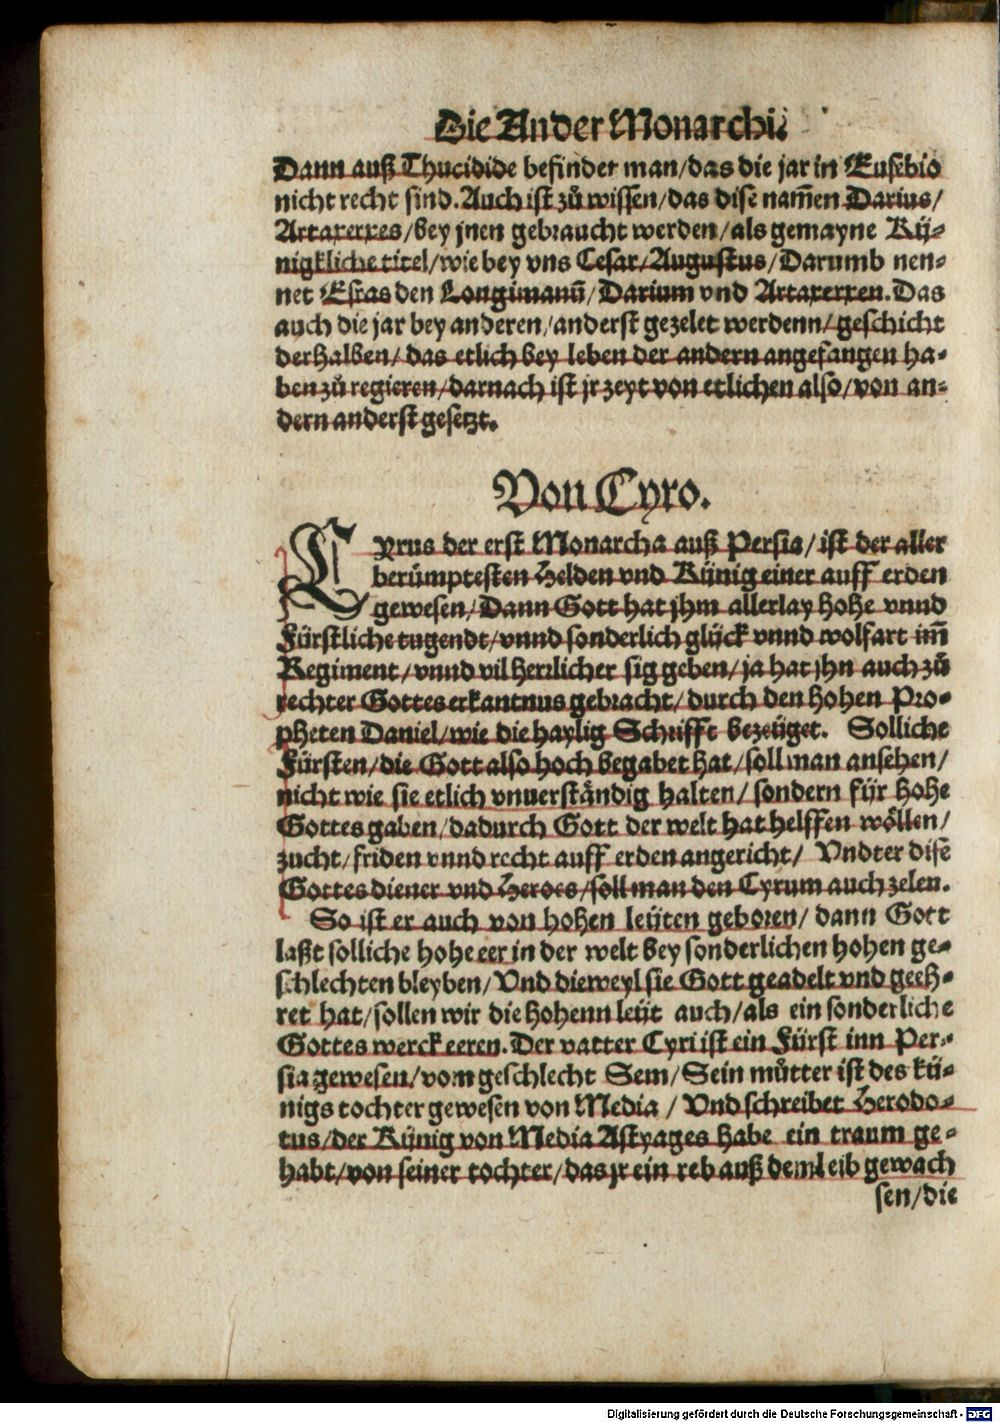 Die Ander Monarchi.
Dann auß Thucidide befindet man/das die jar in Eusebio
nicht recht sind. Auch ist zů wissen/das dise nam̃en Darius/
Artaxerxes/bey jnen gebraucht werden/als gemayne Kü-
nigkliche titel/wie bey vns Cesar/Augustus/Darumb nen-
net Esras den Longimanũ/Darium vnd Artaxerxen. Das
auch die jar bey anderen/anderst gezelet werdenn/geschicht
derhalben/das etlich bey leben der andern angefangen ha-
ben zů regieren/darnach ist jr zeyt von etlichen also/von an-
dern anderst gesetzt.
Von Cyro.
CYrus der erst Monarcha auß Persia/ist der aller
berümptesten Helden vnd Künig einer auff erden
gewesen/Dann Gott hat jhm allerlay hohe vnnd
Fürstliche tugendt/vnnd sonderlich glück vnnd wolfart im̃
Regiment/vnnd vil herrlicher sig geben/ja hat jhn auch zů
rechter Gottes erkantnus gebracht/durch den hohen Pro-
pheten Daniel/wie die haylig Schrifft bezeüget. Solliche
Fürsten/die Gott also hoch begabet hat/soll man ansehen/
nicht wie sie etlich vnuerståndig halten/sondern für hohe
Gottes gaben/dadurch Gott der welt hat helffen wöllen/
zucht/friden vnnd recht auff erden angericht/ Vndter dise
Gottes diener vnd Heroes/soll man den Cyrum auch zelen.
So ist er auch von hohen leüten geboren/dann Gott
laßt solliche hohe eer in der welt bey sonderlichen hohen ge-
schlechten bleyben/Vnd dieweyl sie Gott geadelt vnd geeh-
ret hat/sollen wir die hohenn leüt auch/als ein sonderliche
Gottes werck eeren. Der vatter Cyri ist ein Fürst inn Per-
sia gewesen/vom geschlecht Sem/Sein můtter ist des kü-
nigs tochter gewesen von Media/Vnd schreibet Herodo-
tus/der Künig von Media Astyages habe ein traum ge-
habt/von seiner tochter/das jr ein reb auß dem leib gewach
sen/die
Digitalisierung gefördert durch die Deutsche Forschungsgemeinschaft - DFG